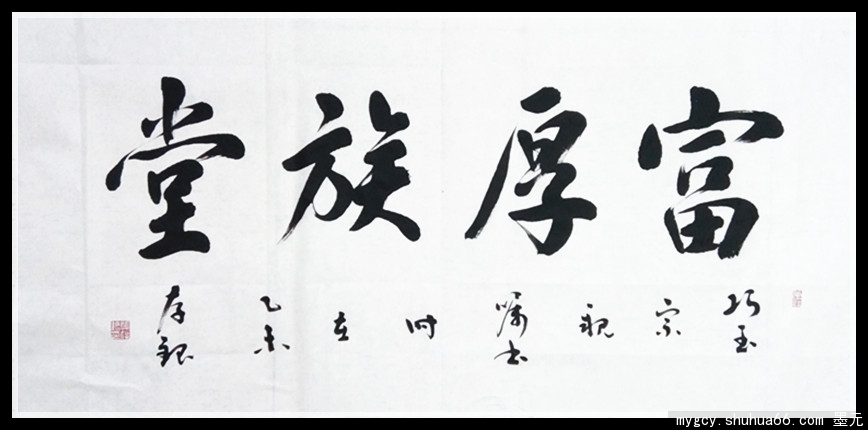 富厚族堂
巧玉宗親嘱书时在乙未存银
mygcy.shuhua66.com 墨元